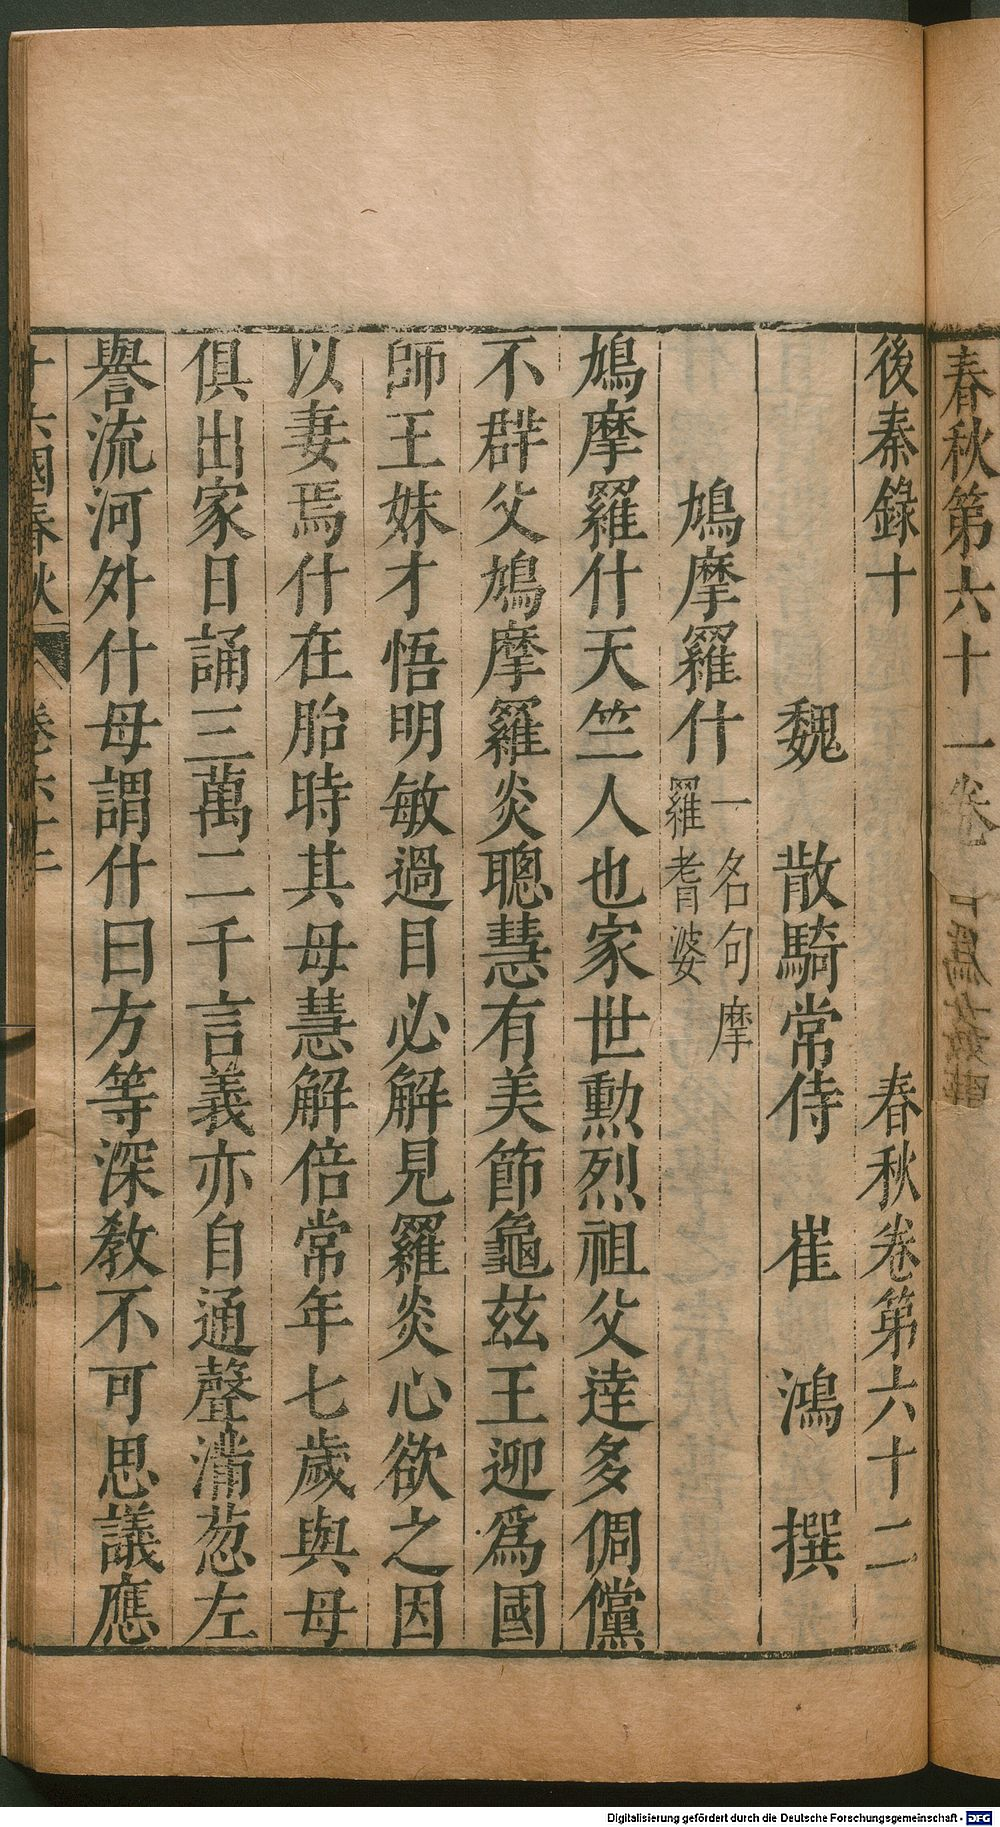 春秋第六十一卷
後秦錄十　春秋卷第六十二
魏　散騎常侍　崔　鴻　撰
鳩摩羅什一名句摩羅耆婆
鳩摩羅什天竺人也家世勳烈祖父達多倜儻
不群父鳩摩羅炎聰慧有美節龜茲王迎爲國
師王妹才悟明敏過目必解見羅炎心欲之因
以妻焉什在胎時其母慧解倍常年七歲與母
俱出家日誦三萬二千言義亦自通聲滿葱左
譽流河外什母謂什曰方等深教不可思議應
十六國春秋　卷六十二　一
Digitalisierung gefördert durch die Deutsche Forschungsgemeinschaft - DFG